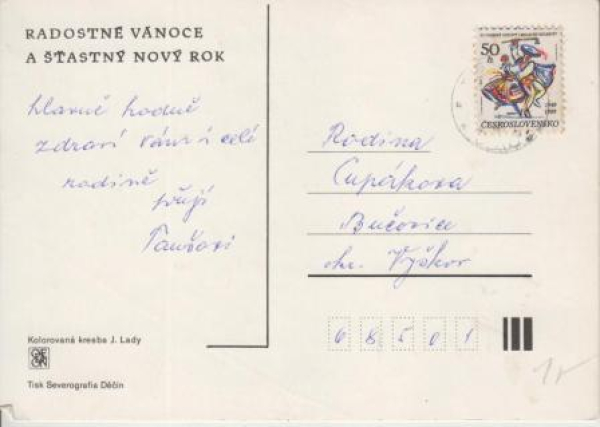 RADOSTNÉ VÁNOCE
A ŠŤASTNÝ NOVÝ ROK
hlavně hodně
zdraví Vám i celé
rodině
přejí
50 h
ČESKOSLOVENSKO
Rodina
Cupákova
Bučovice
okr. Vyškov
68501
Kolorovaná kresba J. Lady
Tisk Severografia Děčín